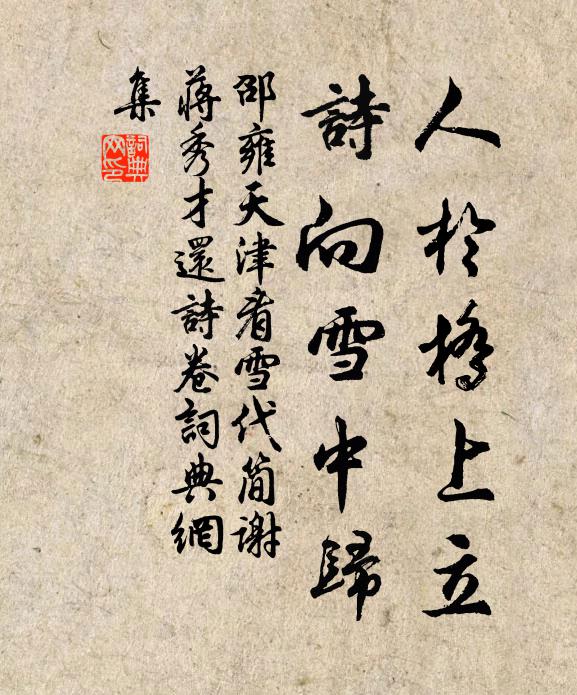 人於橋上立
詩向雪中歸
邵雍天津看雪代简謝
蔣秀才還詩卷詞典網
集
詞典
网印